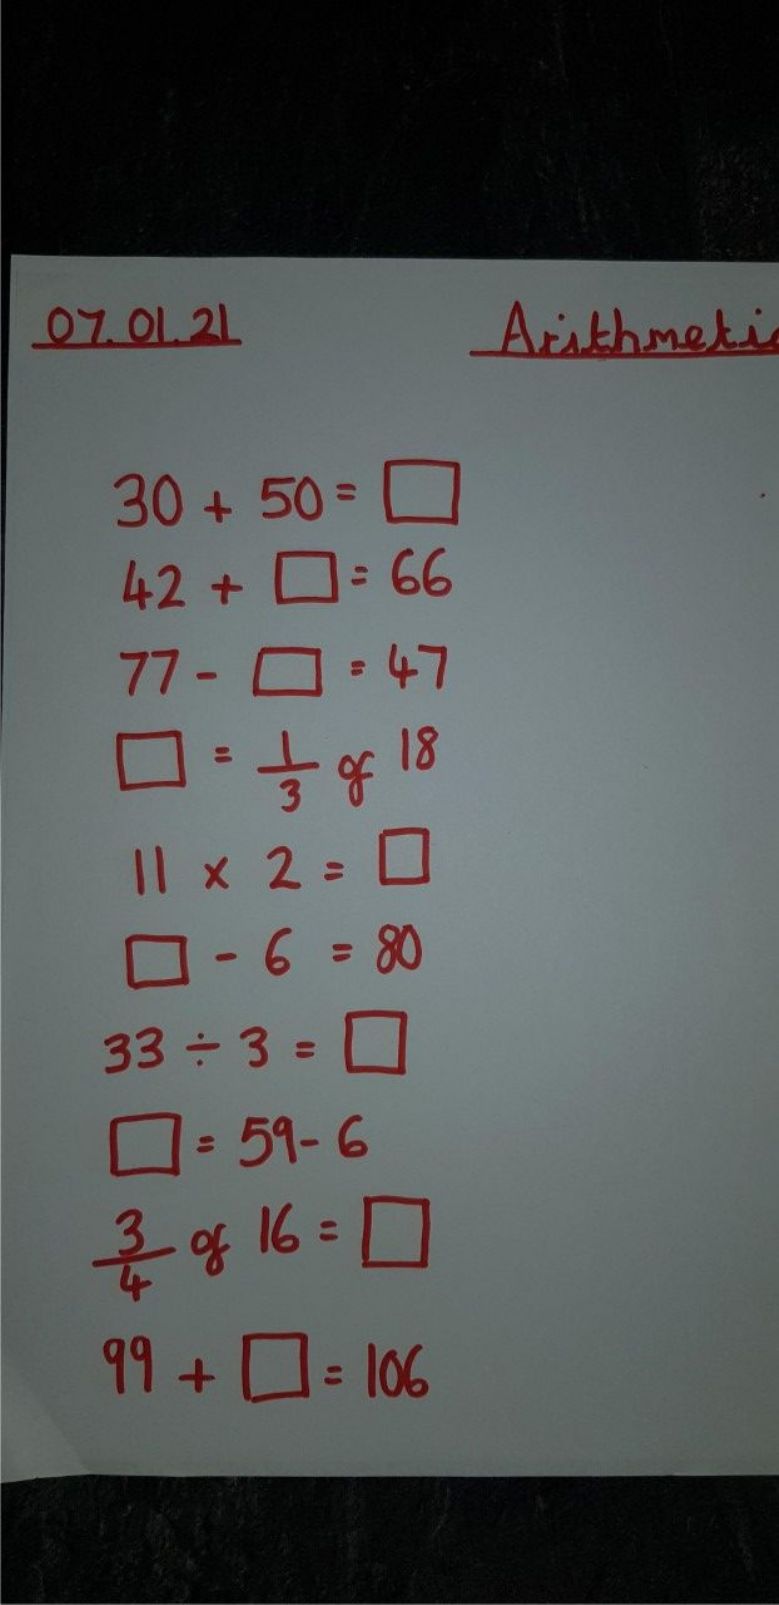 07.01.21 Arithmetic
30 + 50 = □
42 + □ = 66
77 - □ = 47
□ = 1/3 of 18
11 x 2 = □
□ - 6 = 80
33 ÷ 3 = □
□ = 59 - 6
3/4 of 16 = □
99 + □ = 106